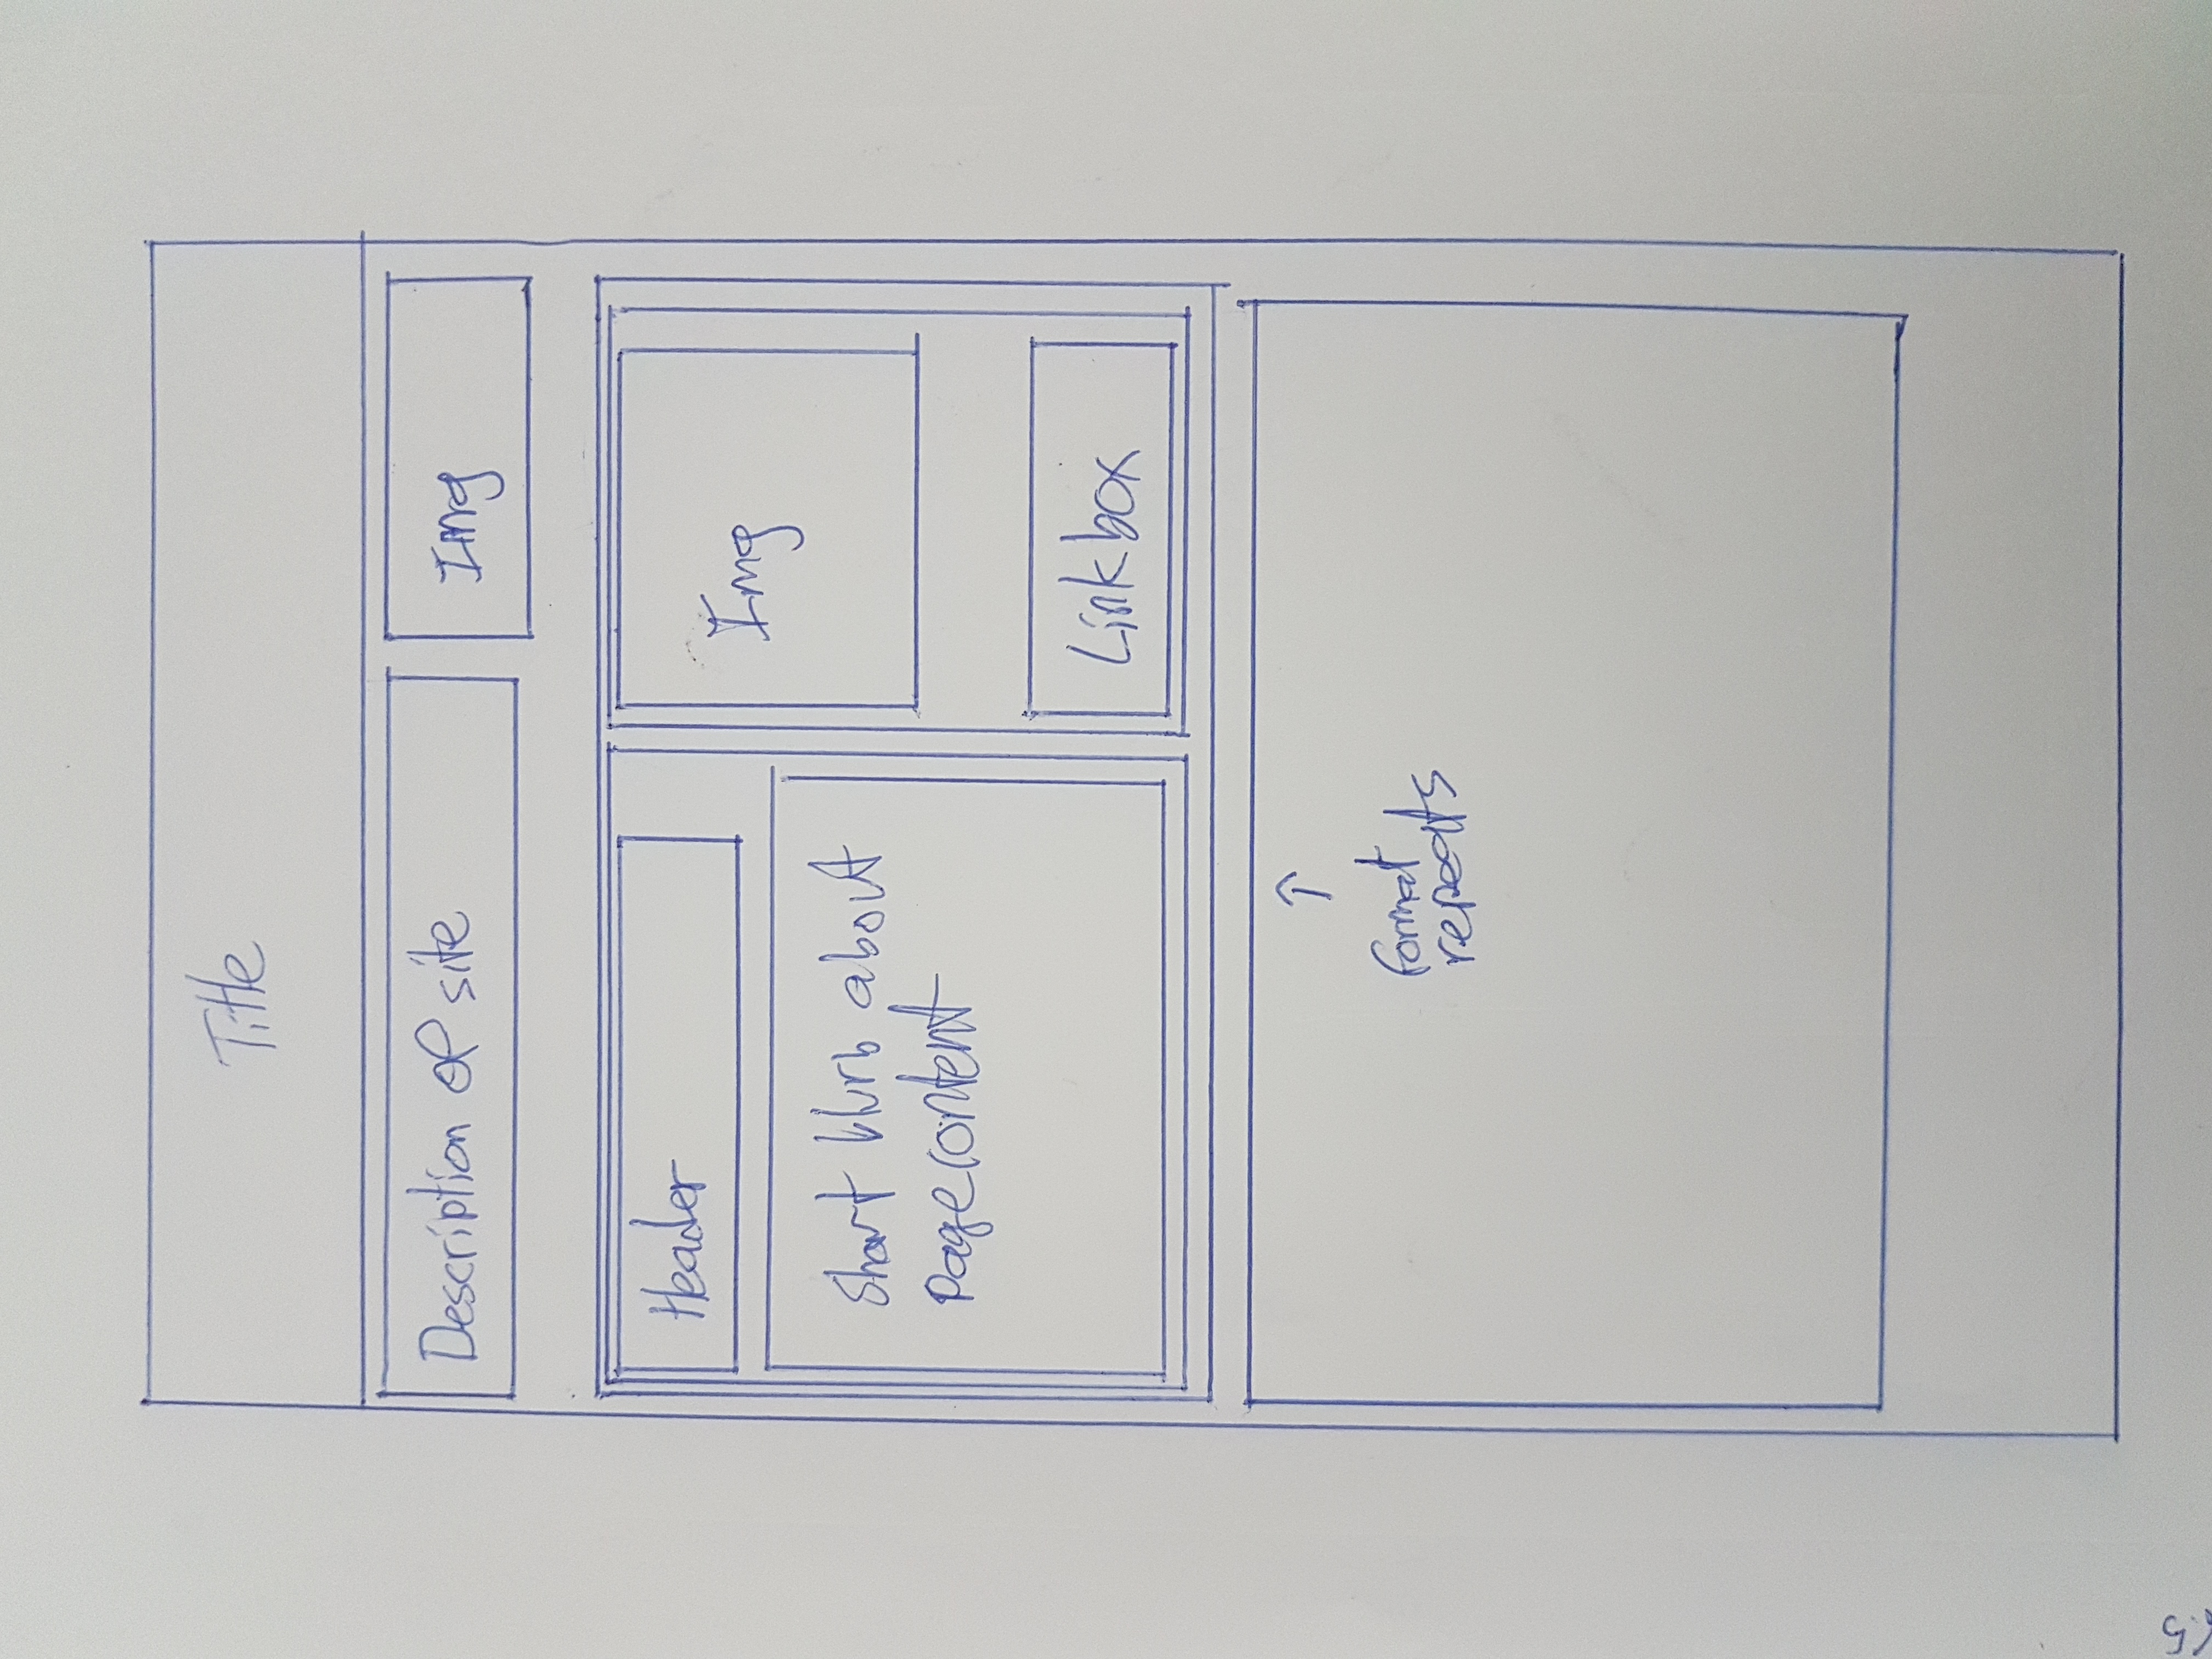 Title
Description of site
Img
Header
Img
Short blurb about
page content
Linkbox
↑
format
repeats